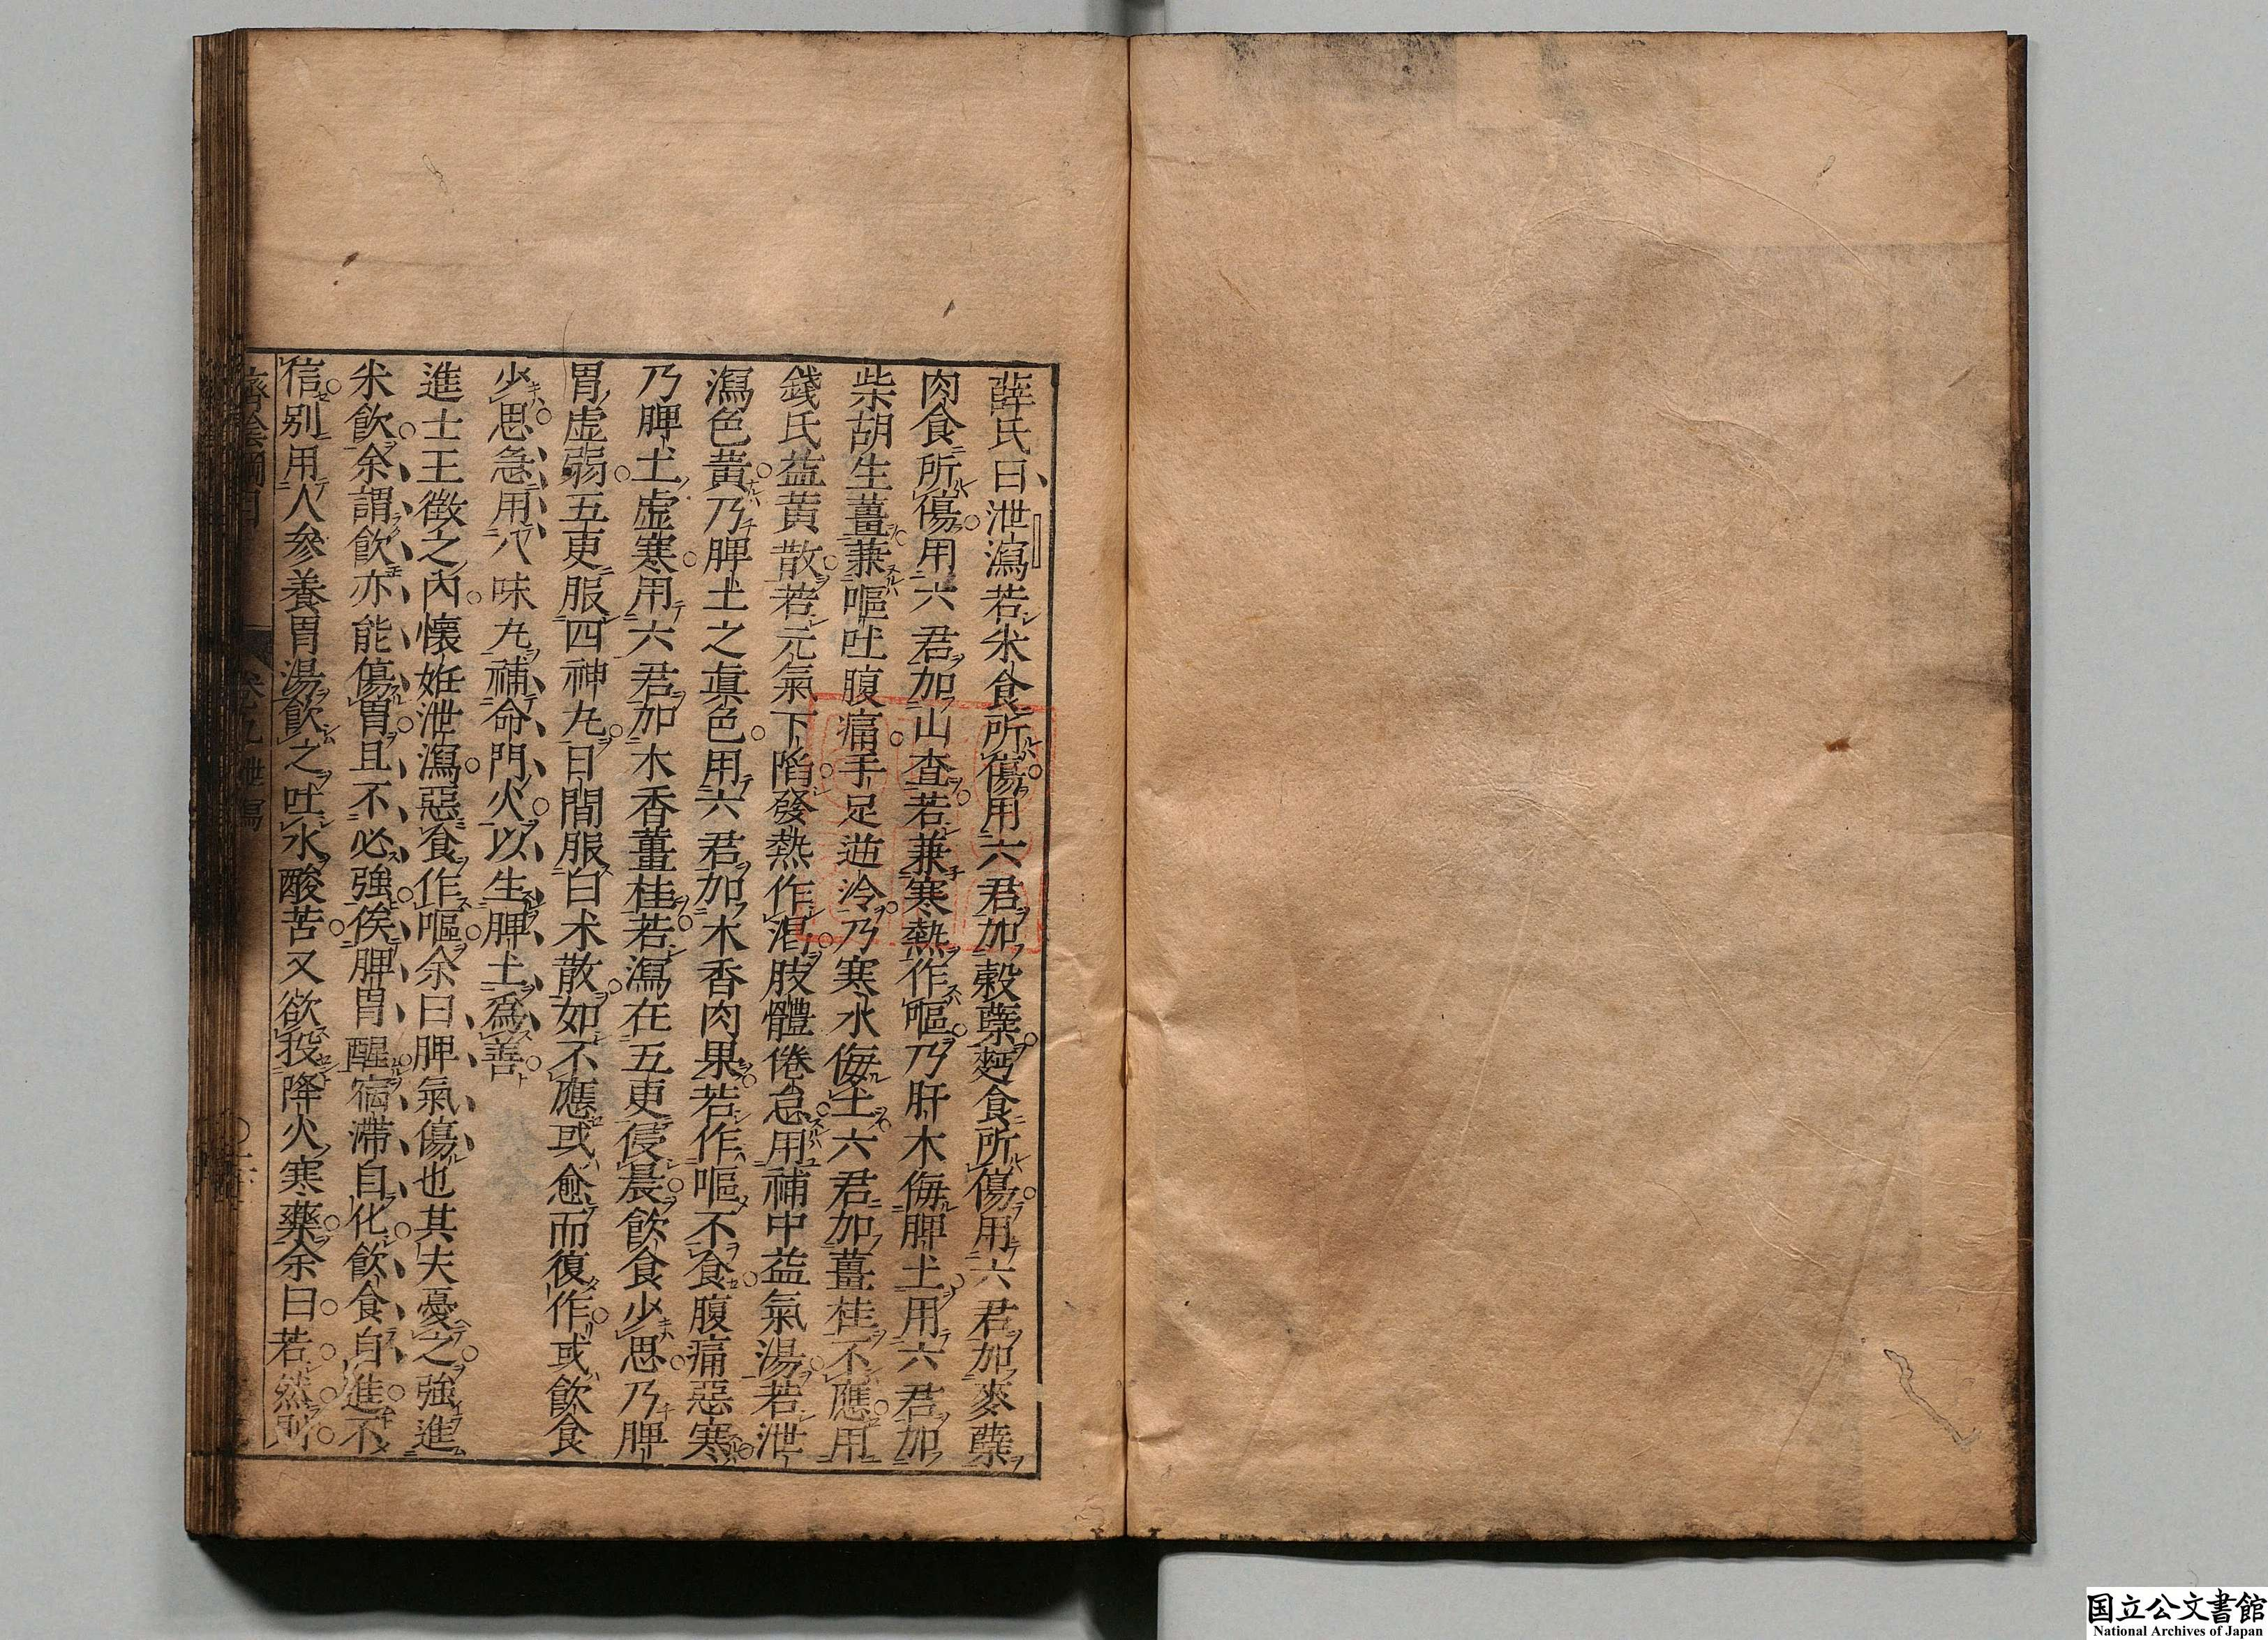 薛氏曰泄瀉若米食所傷用六君加穀蘗麪食所傷用六君加麥蘗
肉食所傷用六君加山査若兼寒熱作嘔乃肝木侮脾土用六君加
柴胡生薑兼嘔吐腹痛手足逆冷乃寒水侮土六君加薑桂不應用
錢氏益黄散若元氣下陷發熱作渴肢體倦怠用補中益氣湯若泄
瀉色黄乃脾土之真色用六君加木香肉果若作嘔不食腹痛惡寒
乃脾土虚寒用六君加木香薑桂若瀉在五更侵晨飲食少思乃脾
胃虚弱五更服四神丸日間服白朮散如不應或愈而復作或飲食
少思急用八味丸補命門火以生脾土爲善
進士王徴之内懐姙泄瀉惡食作嘔余曰脾氣傷也其夫憂之強進
米飲余謂飲亦能傷胃且不必強俟脾胃醒宿滯自化飲食自進不
信别用人參養胃湯飲之吐水酸苦又欲投降火寒藥余曰若然則
濟陰綱目 卷九 泄瀉
国立公文書館
National Archives of Japan